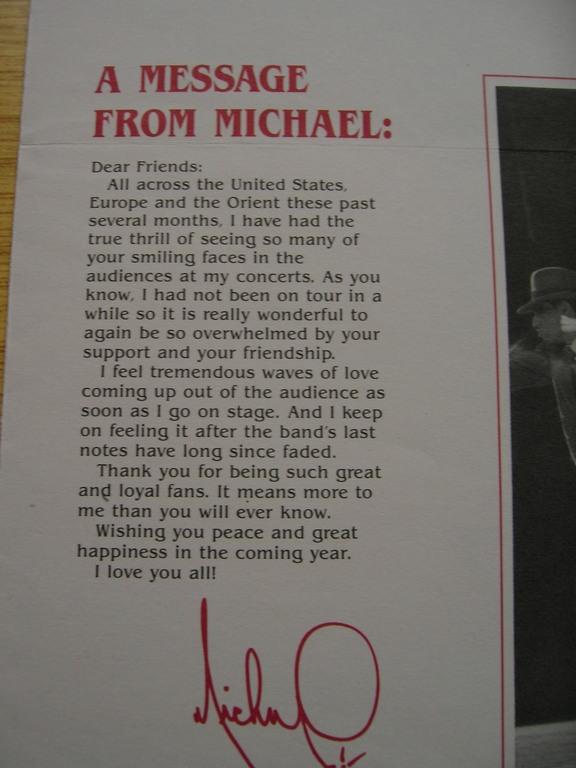 A MESSAGE
FROM MICHAEL:
Dear Friends:
All across the United States,
Europe and the Orient these past
several months, I have had the
true thrill of seeing so many of
your smiling faces in the
audiences at my concerts. As you
know, I had not been on tour in a
while so it is really wonderful to
again be so overwhelmed by your
support and your friendship.
I feel tremendous waves of love
coming up out of the audience as
soon as I go on stage. And I keep
on feeling it after the band's last
notes have long since faded.
Thank you for being such great
and loyal fans. It means more to
me than you will ever know.
Wishing you peace and great
happiness in the coming year.
I love you all!
Michael